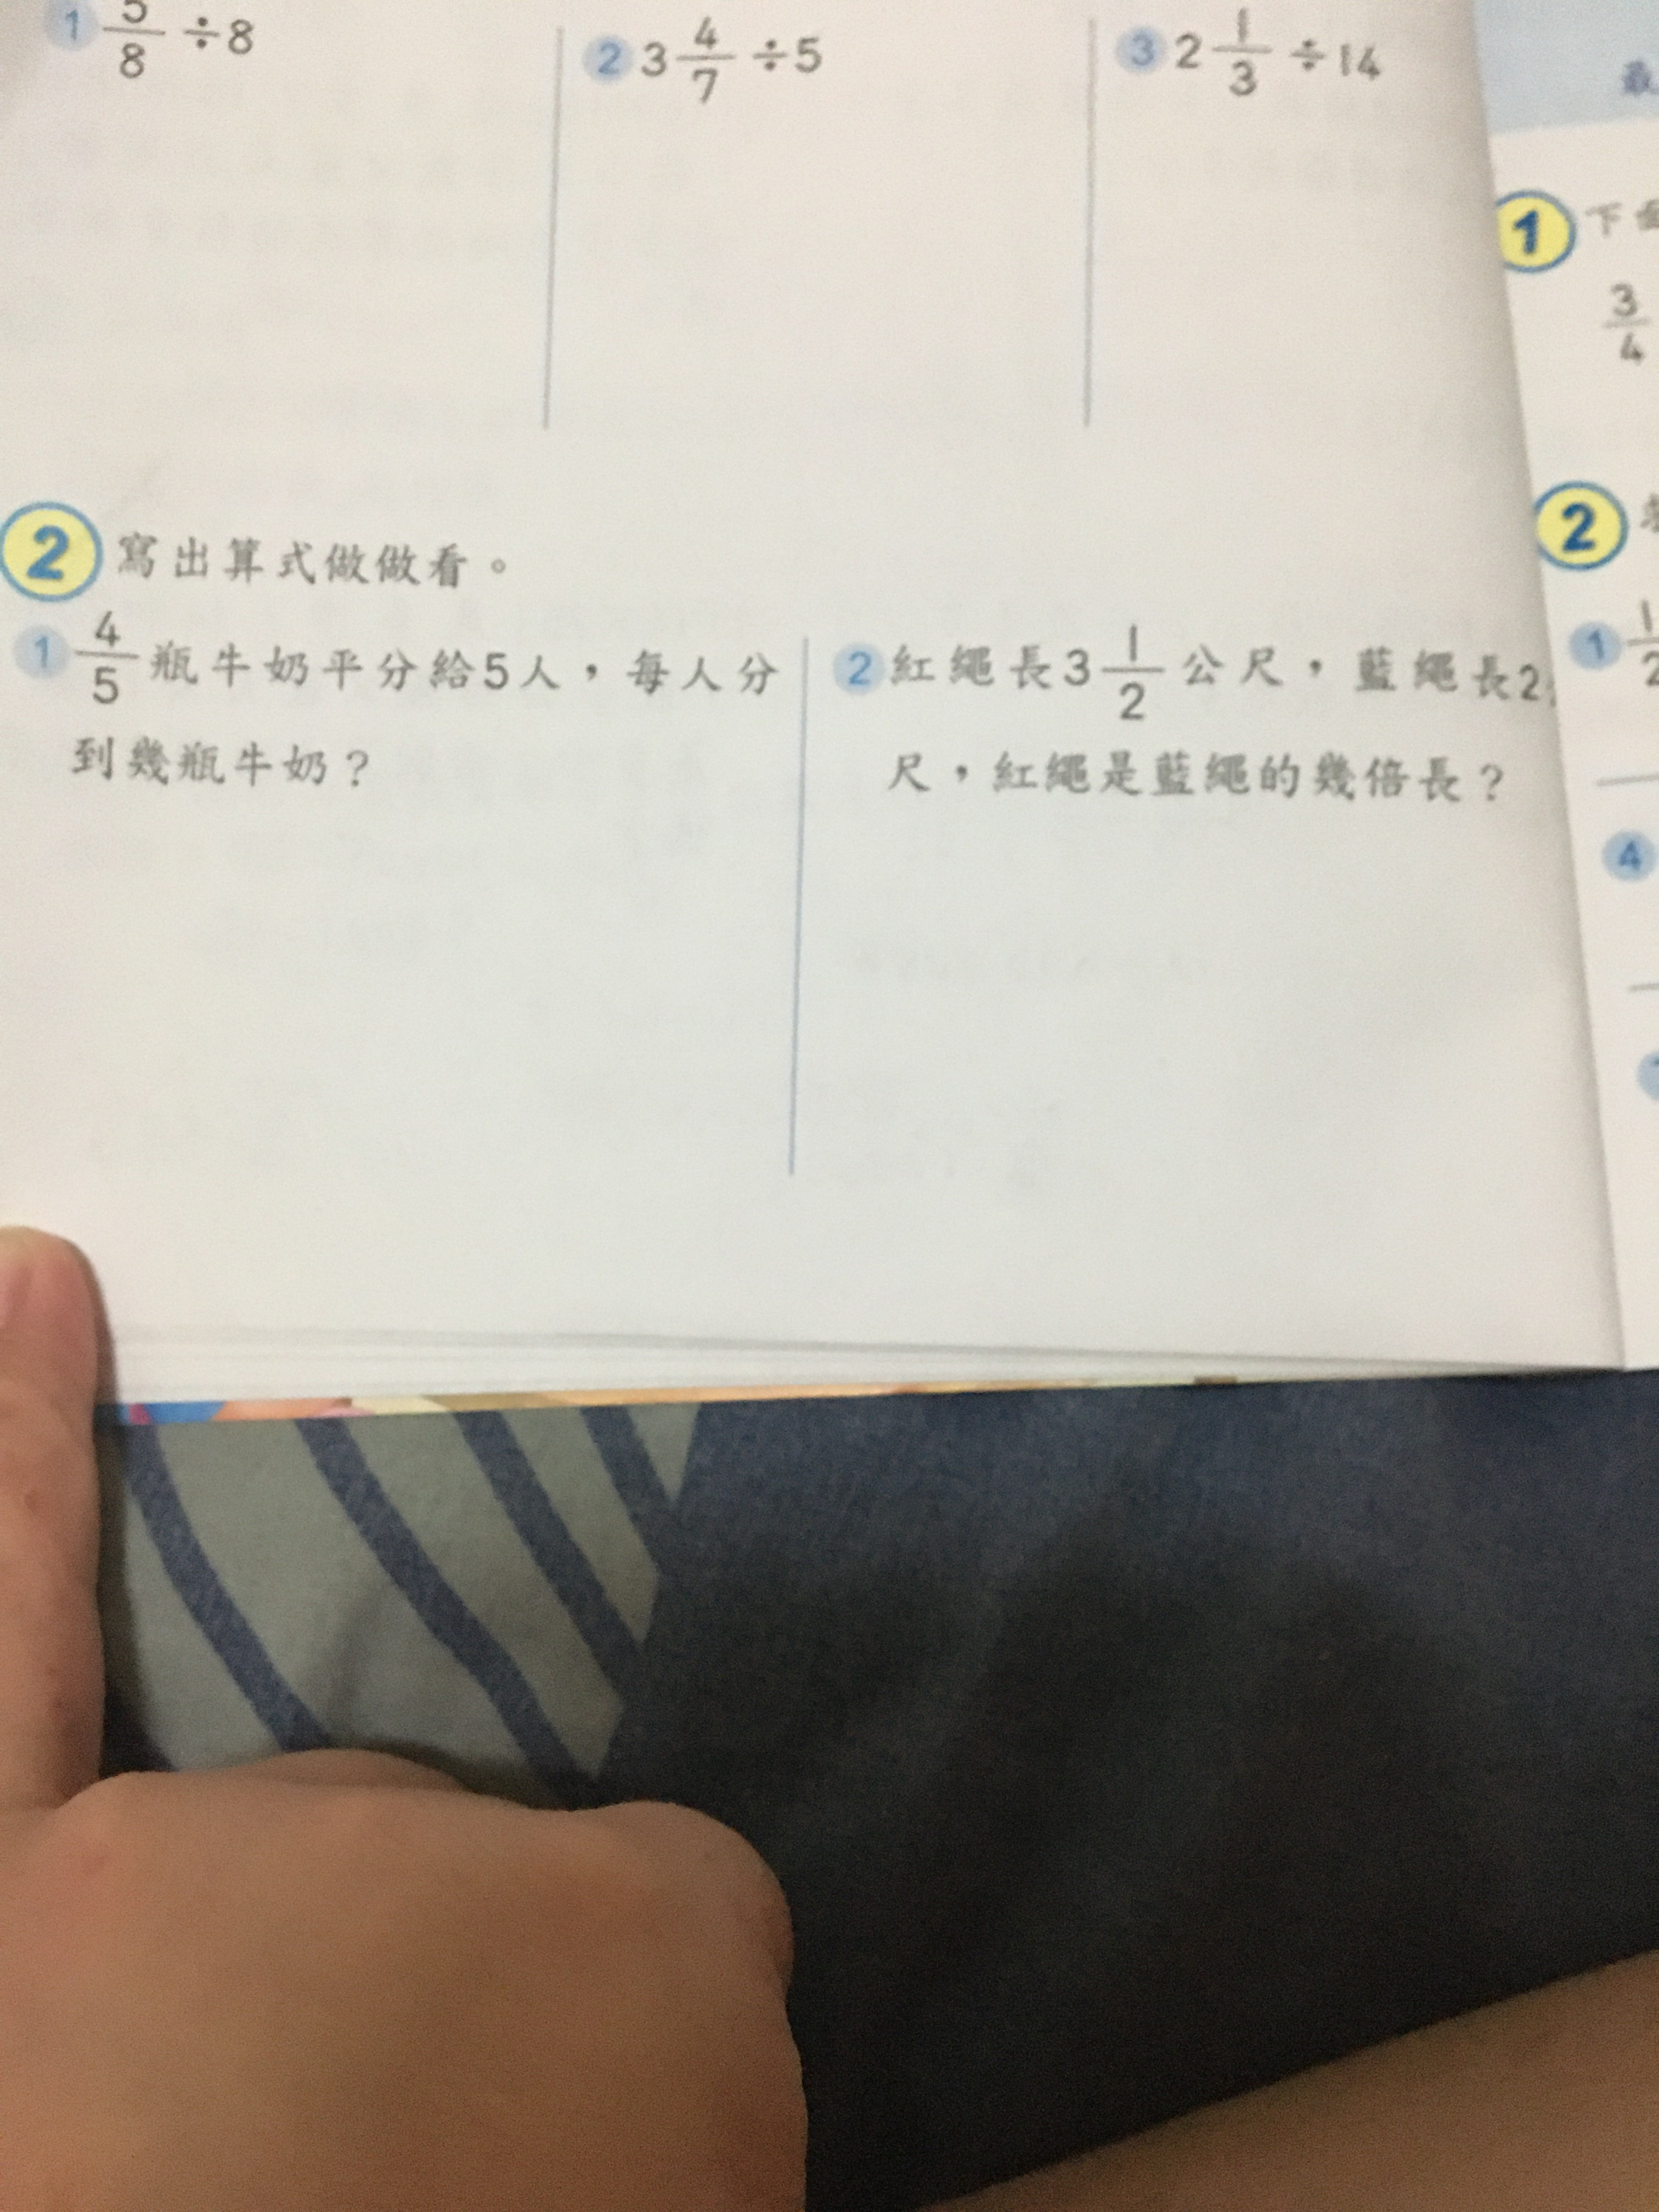 1 5/8 ÷8
2 3 4/7 ÷5
3 2 1/3 ÷14
2 寫出算式做做看。
1 4/5 瓶牛奶平分給5人，每人分
到幾瓶牛奶？
2 紅繩長3 1/2 公尺，藍繩長2
尺，紅繩是藍繩的幾倍長？
最
1 下
3/4
2
1 1/2
4